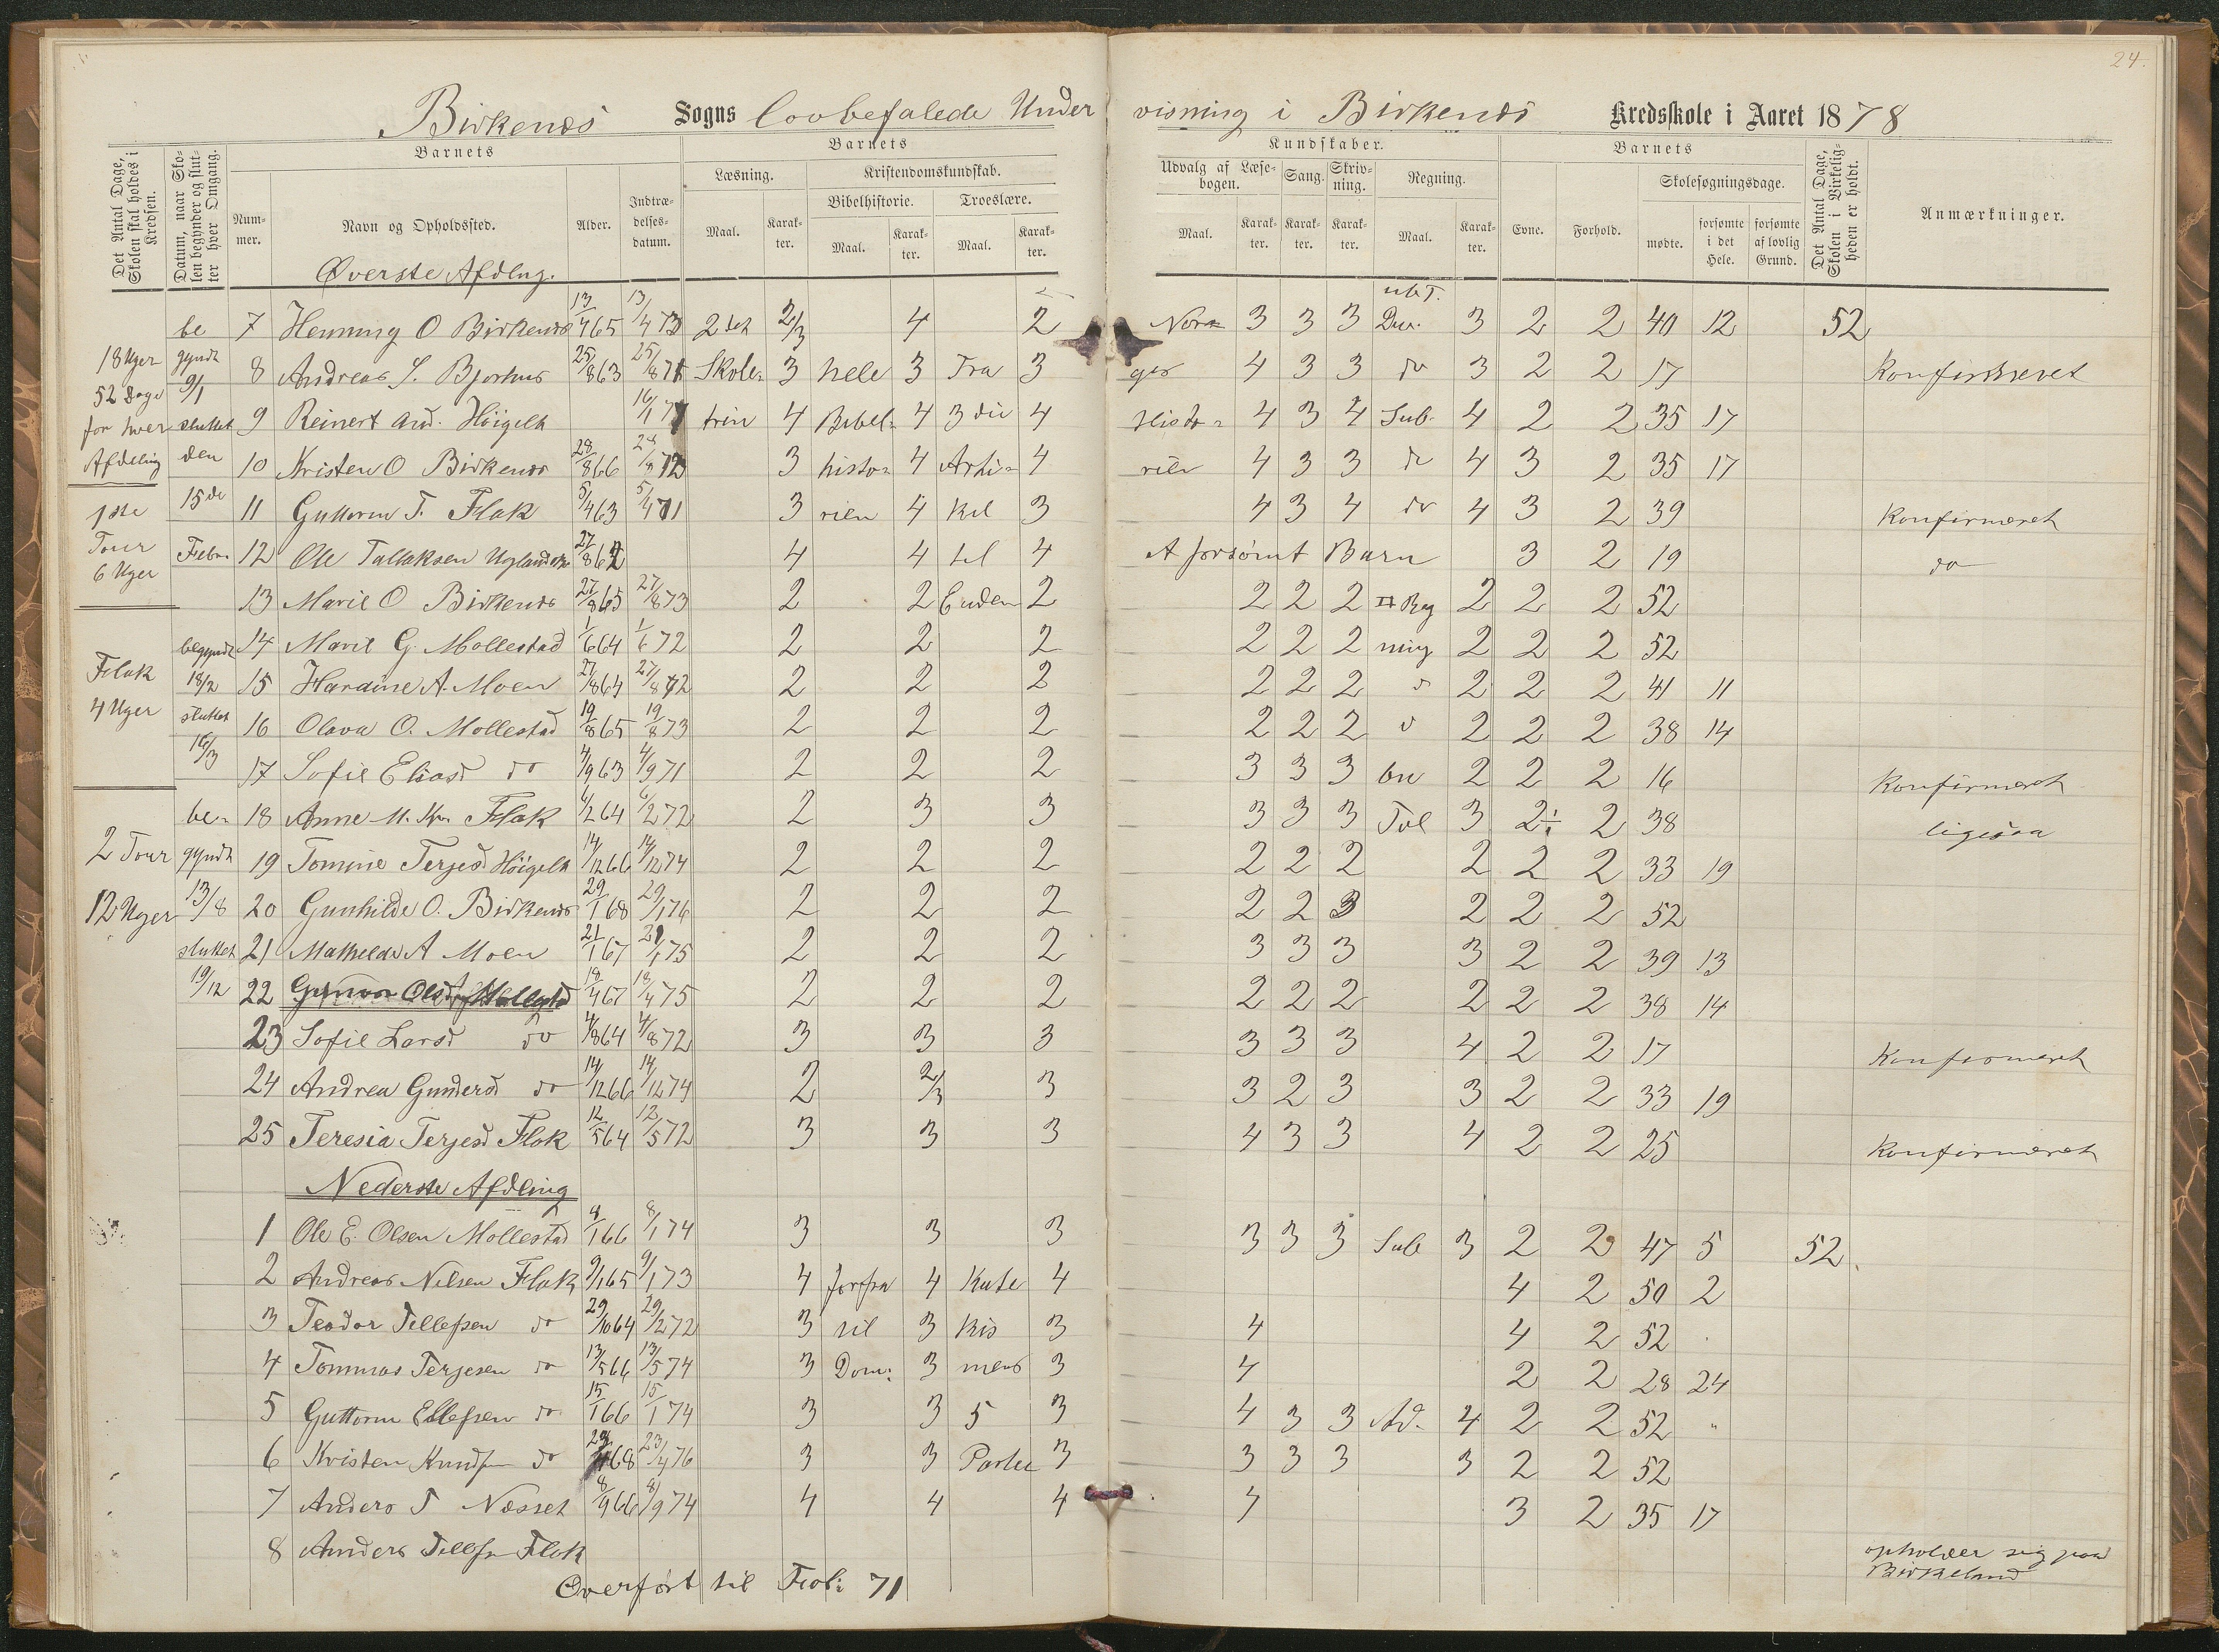 24.
Birkenes Sogns lovbefalede Undervisning i Birkenes Kredsskole i Aaret 1878
Det Antal Dage, Skolen skal holdes i Kredsen.
Datum, naar Skolen begynder og slutter hver Omgang.
Barnets
Nummer. Navn og Opholdssted. Alder. Indtrædelsesdatum.
Barnets
Læsning. Kristendomskundskab.
Bibelhistorie. Troeslære.
Maal. Karakter. Maal. Karakter. Maal. Karakter.
Kundskaber.
Udvalg af Læsebogen. Sang. Skrivning. Regning.
Maal. Karakter. Karakter. Karakter. Maal. Karakter.
Barnets
Evne. Forhold. Skolesøgningsdage.
mødte. forsømte i det Hele. forsømte af lovlig Grund.
Det Antal Dage, Skolen i Virkeligheden er holdt.
Anmærkninger.
Øverste Afdlng.
be 7 Henning O Birkenes 13/4 65 13/4 73 2det 2/3 4 2 Nor= 3 3 3 ubT. Div. 3 2 2 40 12 52
18 Uger gyndt 8 Andreas S. Bjorhus 25/8 63 25/8 71 Skole= 3 hele 3 Fra 3 ges 4 3 3 do 3 2 2 17 Konfirmeret
52 Dage 9/1
for hver sluttet 9 Reinert And. Höigelt 16/1 71 trin 4 Bibel= 4 3die 4 Histo= 4 3 4 Sub. 4 2 2 35 17
Afdeling den 10 Kristen O Birkenes 28/8 66 28/8 72 3 histo= 4 Arti= 4 rien 4 3 3 do 4 3 2 35 17
1ste 15de 11 Guttorm T. Flak 5/4 63 5/4 71 3 rien 4 kel 3 4 3 4 do 4 3 2 39 Konfirmeret
Tour Febr. 12 Ole Tallaksen 27/8 62 4 4 til 4 A forsömt Barn 3 2 19 do
6 Uger
13 Marie O Birkenes 27/8 65 27/8 73 2 2 Enden 2 2 2 2 Reg 2 2 2 52
begyndt 14 Marie G. Mollestad 1/6 64 1/6 72 2 2 2 2 2 2 ning 2 2 2 52
Flak 18/2 15 Hardine A. Moen 27/8 64 27/8 72 2 2 2 2 2 2 2 2 2 41 11
4 Uger sluttet 16 Olava O. Mollestad 19/8 65 19/8 73 2 2 2 2 2 2 2 2 2 38 14
16/3 17 Sofie Eliasd do 4/9 63 4/9 71 2 2 2 3 3 3 2 2 2 16 Konfirmeret
be= 18 Anne M. Kr. Flak 6/2 64 6/2 72 2 3 3 3 3 3 3 2 38 ligesaa
2 Tour gyndt 19 Tomine Terjesd Höigelt 14/12 66 14/12 74 2 2 2 2 2 2 2 2 2 33 19
12 Uger 13/8 20 Gunhilde O. Birkenes 29/1 68 29/1 76 2 2 2 2 2 3 2 2 2 52
sluttet 21 Mathilde A Moen 21/1 67 21/1 75 2 2 2 3 3 3 3 2 2 39 13
19/12 22 Gunvor Olsd Mollestd 18/4 67 18/4 75 2 2 2 2 2 2 2 2 2 38 14
23 Sofie Larsd do 4/8 64 4/8 72 3 3 3 3 3 3 4 2 2 17 Konfirmeret
24 Andrea Gundersd do 14/12 66 14/12 74 2 2/3 3 3 2 3 3 2 2 33 19
25 Teresia Terjesd Flak 12/5 64 12/5 72 3 3 3 4 3 3 4 2 2 25 Konfirmeret
Nederste Afdling
1 Ole E. Olsen Mollestad 8/1 66 8/1 74 3 3 3 3 3 3 Sub 3 2 2 47 5 52
2 Andreas Nilsen Flak 9/1 65 9/1 73 4 forfra 4 Kate 4 4 2 50 2
3 Teodor Tellefsen do 29/10 64 29/2 72 3 til 3 kis 3 4 4 2 52
4 Tommas Terjesen do 13/5 66 13/5 74 3 Dom: 3 mens 3 4 2 2 28 24
5 Guttorm Ellefsen do 15/1 66 15/1 74 3 3 5 3 4 3 3 Ad. 4 2 2 52 "
6 Kristen Knudsen do 23/4 68 23/4 76 3 3 Parter 3 3 3 3 3 2 2 52
7 Anders T Næsset 8/9 66 8/9 74 4 4 4 4 3 2 35 17
8 Anders Tellfsn Flak opholder sig paa Birkeland
Overfört til Fol: 71